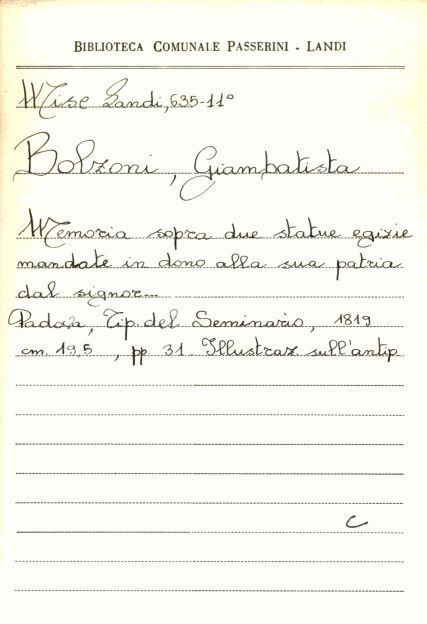 BIBLIOTECA COMUNALE PASSERINI - LANDI
Misc Landi, 635-11°
Bolzoni, Giambatista
Memoria sopra due statue egizie
mandate in dono alla sua patria
dal signor...
Padova, Tip. del Seminario, 1819
cm. 19,5 , pp 31. Illustraz sull'antip.
C